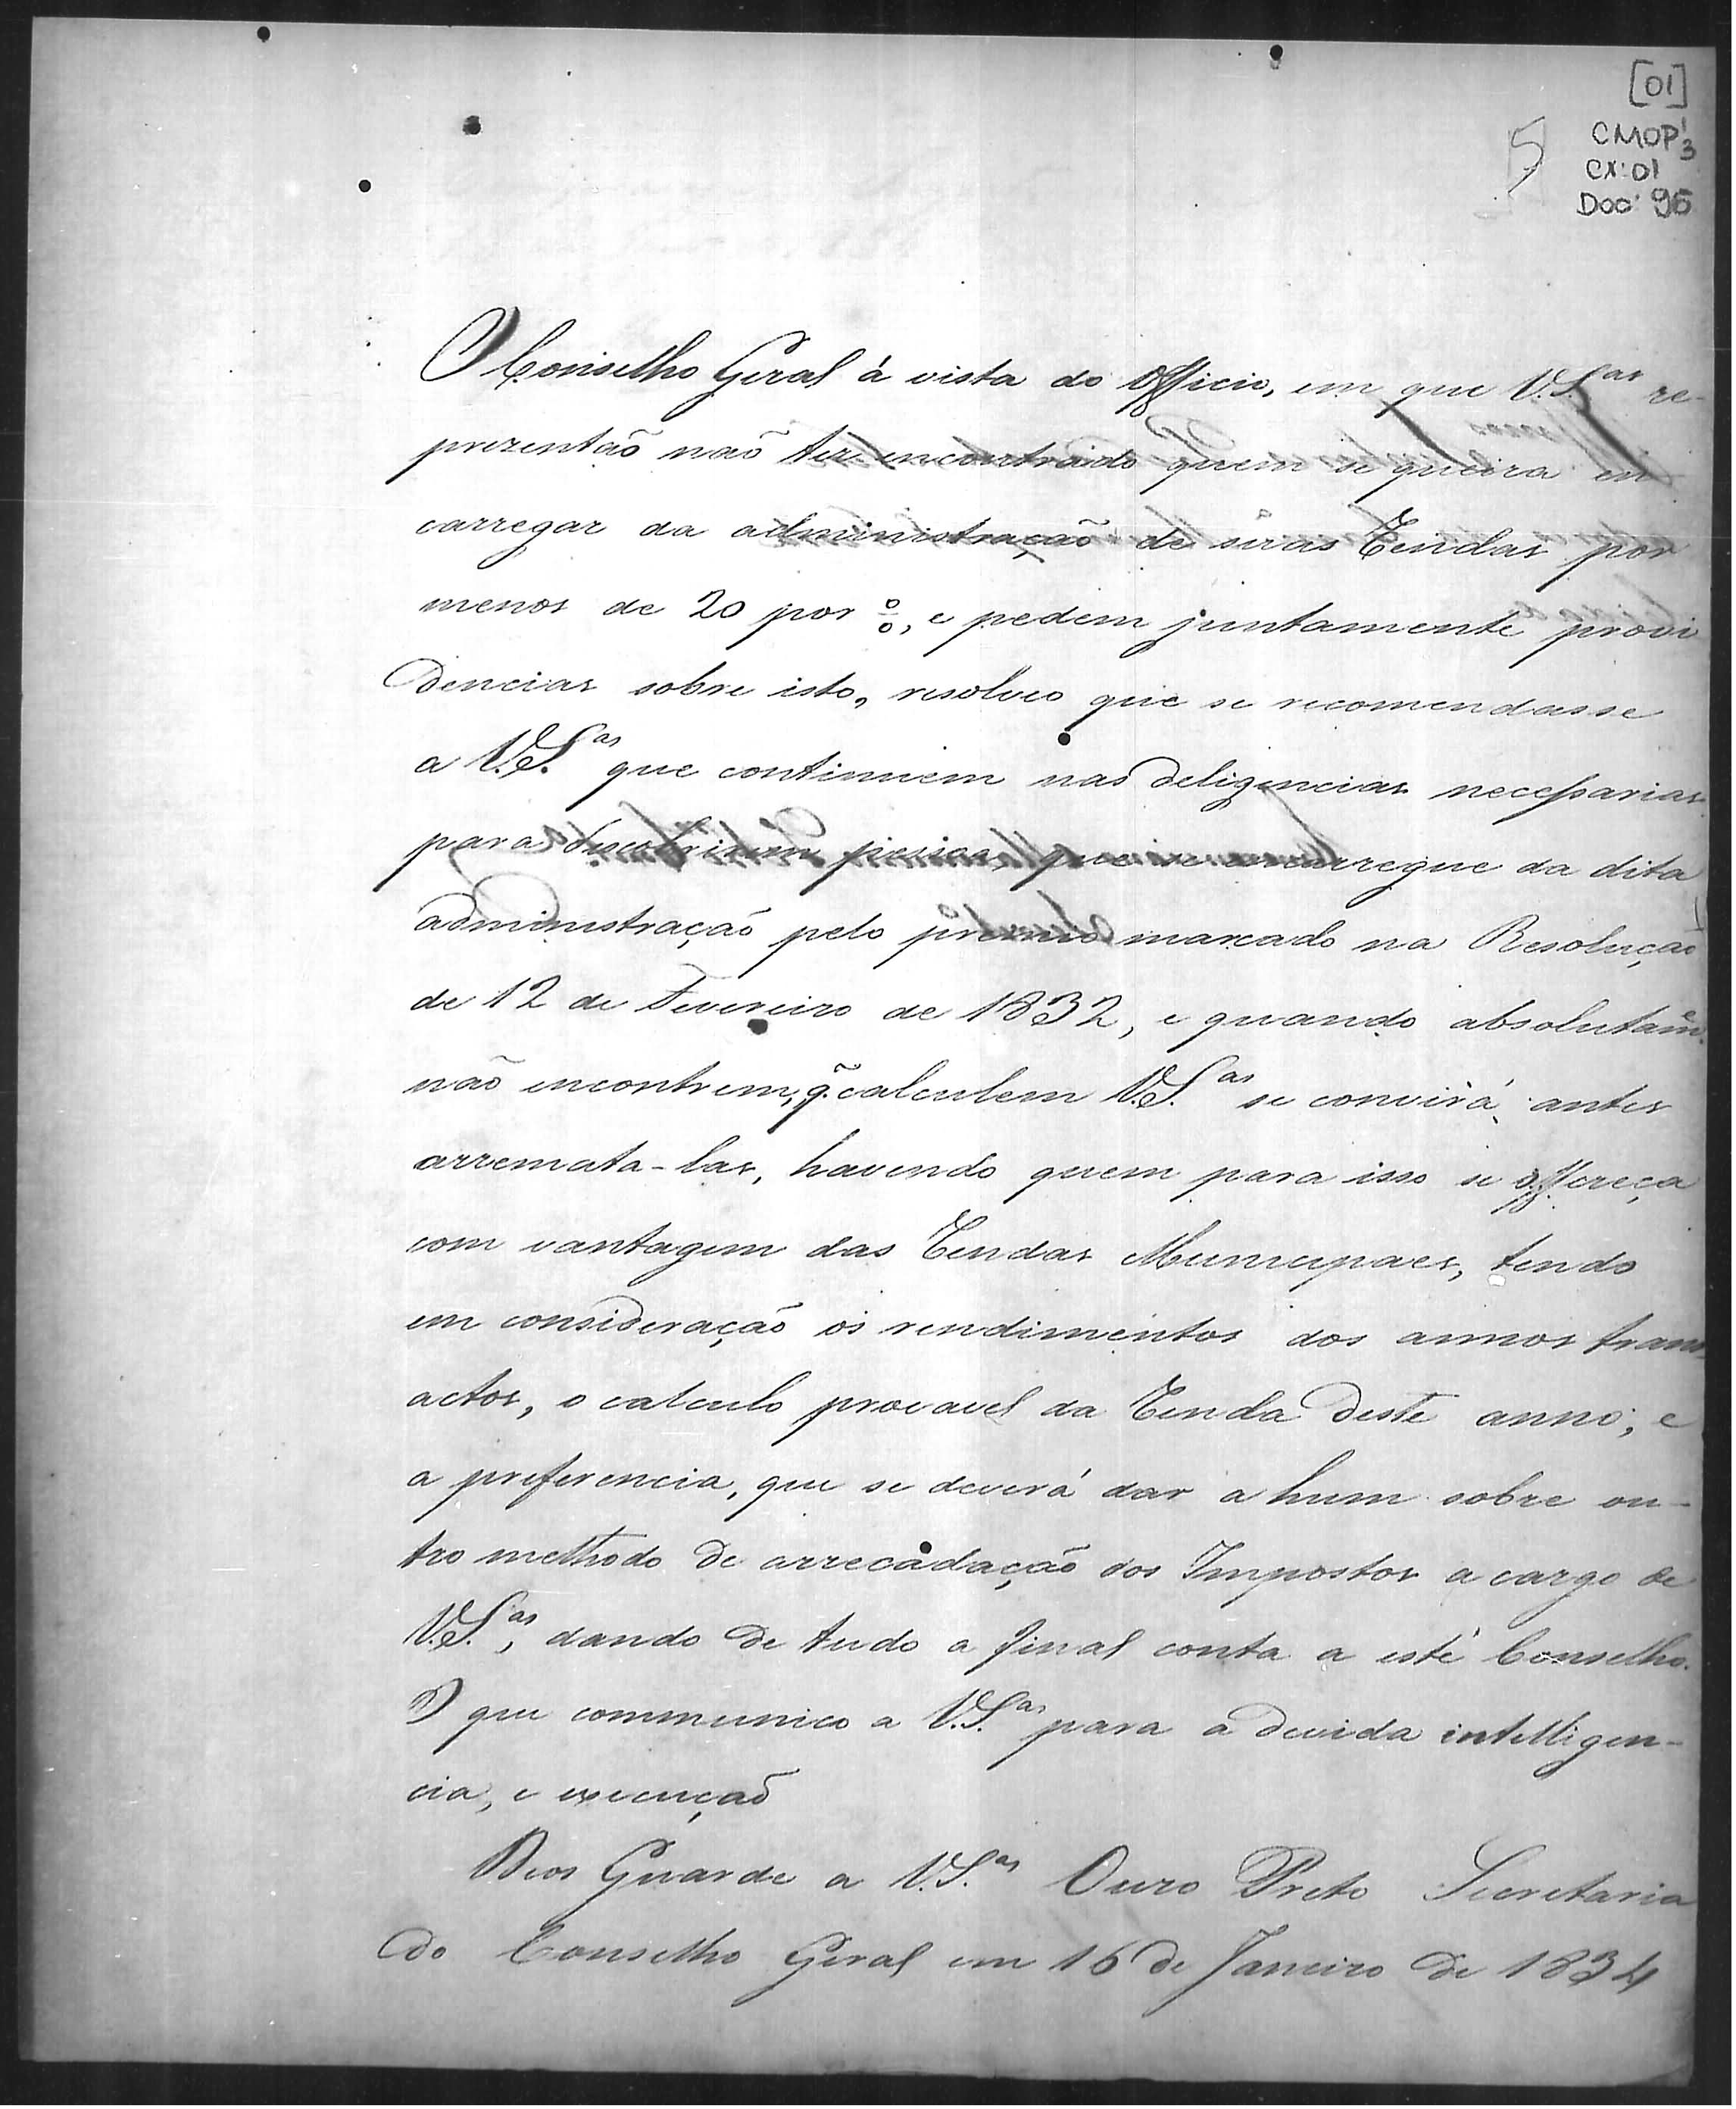 [01]
CMOP 1/3
CX: 01
DOC 95
O Conselho Geral á vista do Officio, em que V.S.as re-
prezentão não ter encontrado quem se queira en
carregar da administração de suas Rendas por
menos de 20 por %, e pedem juntamente provi
dencias sobre isto, resolveo que se recomendasse
a V.S.as que continuem nas deligencias necessarias
para descobrirem pessoa, que se encarregue da dita
administração pelo premio marcado na Resolução
de 12 de Fevereiro de 1832, e quando absolutam.e
não encontrem, q̃ calculem V.S.as se convirá antes
arremata-las, havendo quem para isso se offereça
com vantagem das Rendas Municipaes, tendo
em consideração os rendimentos dos annos trans
actos, o calculo provavel da Renda deste anno, e
a preferencia, que se deverá dar a hum sobre ou-
tro methodo de arrecadação dos Impostos a cargo de
V.S.as, dando de tudo a final conta a este Conselho.
O que communico a V.S.as para a devida intelligen-
cia, e execução
Deos Guarde a V.S.as Ouro Preto Secretaria
do Conselho Geral em 16 de Janeiro de 1834